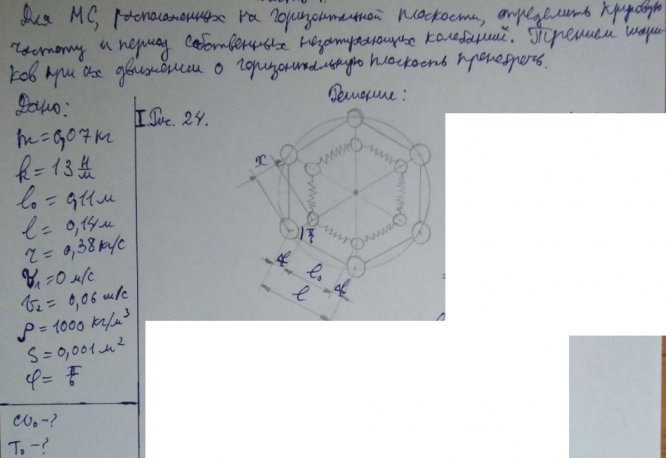 Для МС, расположенных на горизонтальной плоскости, определить круговую
частоту и период собственных незатухающих колебаний. Трением шари-
ков при их движении о горизонтальную плоскость пренебречь.
Дано:
Решение:
I Рис. 24.
m = 0,07 кг
k = 13 Н/м
l₀ = 0,11 м
l = 0,14 м
r = 0,38 кг/с
v₁ = 0 м/с
v₂ = 0,06 м/с
ρ = 1000 кг/м³
S = 0,001 м²
φ = π/6
ω₀ - ?
T₀ - ?
x
l₀
l